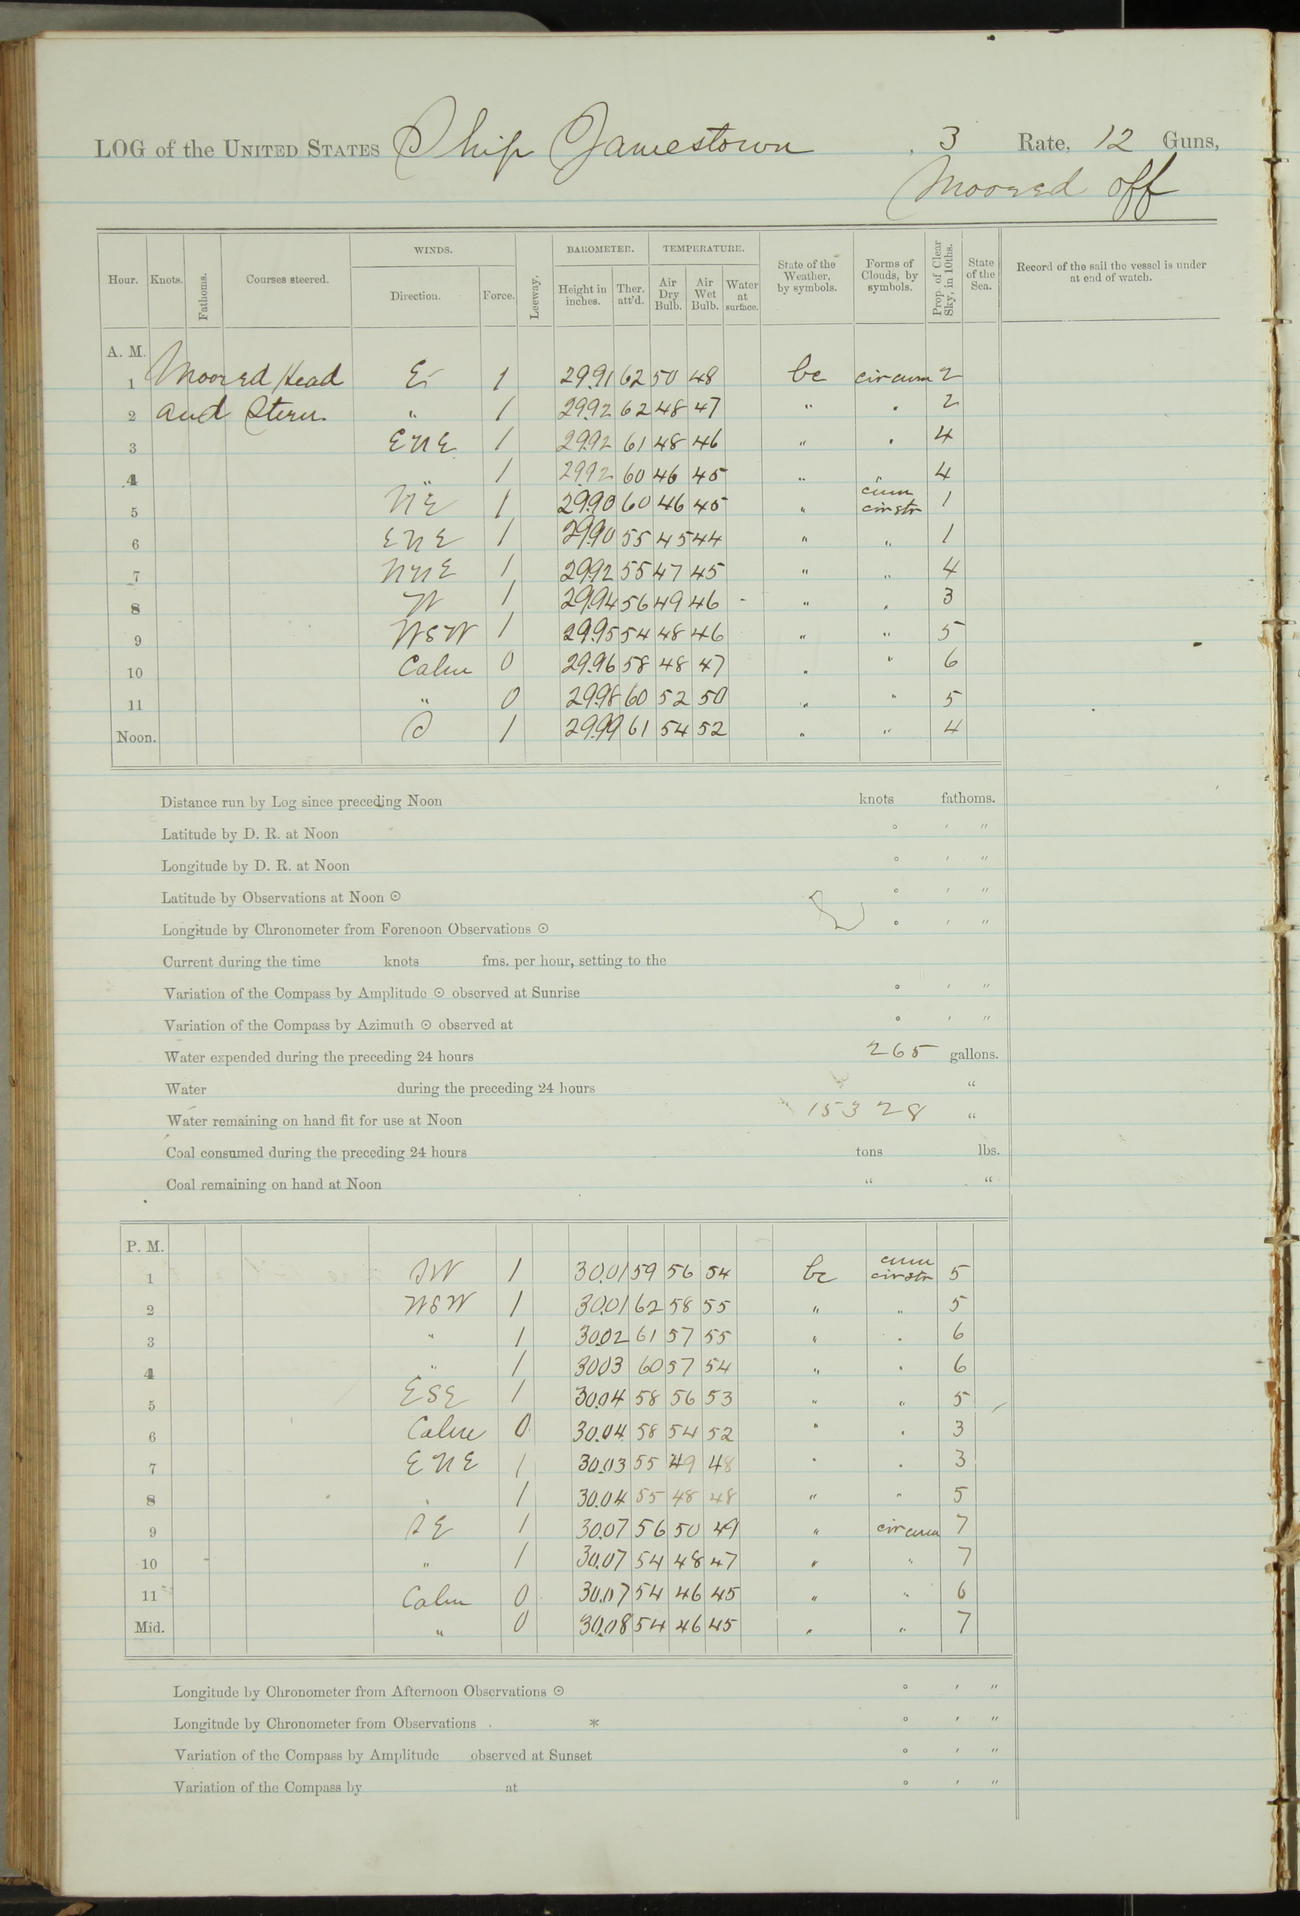 LOG of the UNITED STATES Ship Jamestown , 3 Rate, 12 Guns,
Moored off
Hour. Knots. Fathoms. Courses steered. WINDS. Direction. Force. Leeway. BAROMETER. Height in inches. Ther. att'd. TEMPERATURE. Air Dry Bulb. Air Wet Bulb. Water at surface. State of the Weather, by symbols. Forms of Clouds, by symbols. Prop. of Clear Sky, in 10ths. State of the Sea. Record of the sail the vessel is under at end of watch.
A. M.
1 Moored Head E 1 29.91 62 50 48 bc cir cum 2
2 and Stern " 1 29.92 62 48 47 " " 2
3 ENE 1 29.92 61 48 46 " " 4
4 " 1 29.92 60 46 45 " " 4
5 NE 1 29.90 60 46 45 " cum cir str 1
6 ENE 1 29.90 55 45 44 " " 1
7 NNE 1 29.92 55 47 45 " " 4
8 W 1 29.94 56 49 46 - " " 3
9 WSW 1 29.95 54 48 46 " " 5
10 Calm 0 29.96 58 48 47 " " 6
11 " 0 29.98 60 52 50 " " 5
Noon. S 1 29.99 61 54 52 " " 4
Distance run by Log since preceding Noon knots fathoms.
Latitude by D. R. at Noon ° ′ ″
Longitude by D. R. at Noon ° ′ ″
Latitude by Observations at Noon ☉ ° ′ ″
Longitude by Chronometer from Forenoon Observations ☉ ° ′ ″
Current during the time knots fms. per hour, setting to the
Variation of the Compass by Amplitude ☉ observed at Sunrise ° ′ ″
Variation of the Compass by Azimuth ☉ observed at ° ′ ″
Water expended during the preceding 24 hours 265 gallons.
Water during the preceding 24 hours "
Water remaining on hand fit for use at Noon 15328 "
Coal consumed during the preceding 24 hours tons lbs.
Coal remaining on hand at Noon " "
P. M.
1 SW 1 30.01 59 56 54 bc cum cir str 5
2 WSW 1 30.01 62 58 55 " " 5
3 " 1 30.02 61 57 55 " " 6
4 " 1 30.03 60 57 54 " " 6
5 ESE 1 30.04 58 56 53 " " 5
6 Calm 0 30.04 58 54 52 " " 3
7 ENE 1 30.03 55 49 48 " " 3
8 " 1 30.04 55 48 48 " " 5
9 SE 1 30.07 56 50 49 " cir cum 7
10 " 1 30.07 54 48 47 " " 7
11 Calm 0 30.07 54 46 45 " " 6
Mid. " 0 30.08 54 46 45 " " 7
Longitude by Chronometer from Afternoon Observations ☉ ° ′ ″
Longitude by Chronometer from Observations * ° ′ ″
Variation of the Compass by Amplitude observed at Sunset ° ′ ″
Variation of the Compass by at ° ′ ″